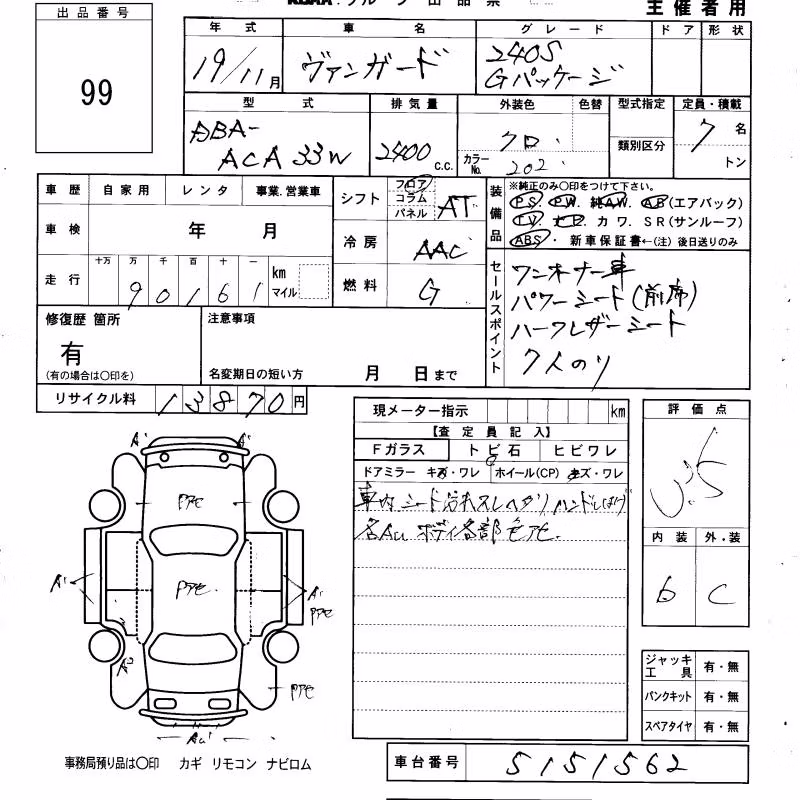 主催者用
出品番号
99
年式 車名 グレード ドア 形状
19/11月 ヴァンガード 240S
Gパッケージ
型式 排気量 外装色 色替 型式指定 定員・積載
DBA-
ACA33W 2400 c.c. クロ 7名
カラーNo. 202 類別区分 トン
車歴 自家用 レンタ 事業.営業車
車検 年 月
走行 十万 万 千 百 十 一 km マイル
90161
シフト フロア コラム パネル AT
冷房 AAC
燃料 G
装備品 ※純正のみ〇印をつけて下さい。
PS. PW. 純AW. AB(エアバック)
TV. ナビ. カワ. SR(サンルーフ)
ABS・新車保証書←(注)後日送りのみ
セールスポイント
ワンオーナー車
パワーシート(前席)
ハーフレザーシート
7人のり
修復歴 箇所
有
(有の場合は〇印を)
注意事項
名変期日の短い方 月 日まで
リサイクル料 13870円
現メーター指示 km
【査定員記入】
Fガラス トビ石 ヒビワレ
ドアミラー キズ・ワレ ホイール(CP) キズ・ワレ
車内シート汚れスレヘタリ ハンドルはげ
各AU ボディ各部色アセ.
評価点
3.5
内装 外・装
b C
ジャッキ工具 有・無
パンクキット 有・無
スペアタイヤ 有・無
A' A'
Pアセ
Pアセ
A' A'
Pアセ
A'
Pアセ
AU'
事務局預り品は〇印 カギ リモコン ナビロム
車台番号 5151562